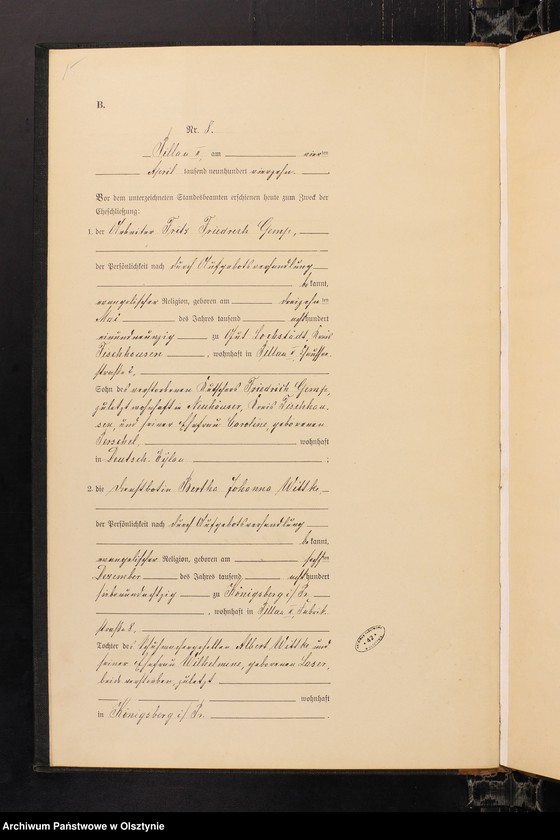 B.
Nr. 8.
Pillau II, am vierten
April tausend neunhundert vierzehn.
Vor dem unterzeichneten Standesbeamten erschienen heute zum Zweck der
Eheschließung:
1. der Arbeiter Fritz Friedrich Gemp,
der Persönlichkeit nach durch Aufgebotsverhandlung
bekannt,
evangelischer Religion, geboren am dreizehnten
Mai des Jahres tausend achthundert
einundneunzig zu Gut Lochstädt, Kreis
Fischhausen, wohnhaft in Pillau II,
straße
Sohn des verstorbenen Kutschers Friedrich Gemp,
zuletzt wohnhaft in Neuhäuser, Kreis Fischhau-
sen, und seiner Ehefrau Caroline, geborenen
wohnhaft
in Deutsch-Eylau ;
2. die Dienstbotin Bertha Johanna Wittke,
der Persönlichkeit nach durch Aufgebotsverhandlung
bekannt,
evangelischer Religion, geboren am sechsten
Dezember des Jahres tausend achthundert
siebenundachtzig zu Königsberg i/Pr.
, wohnhaft in Pillau II, Fabrik-
straße 8,
Tochter des Schuhmachergesellen Albert Wittke und
seiner Ehefrau Wilhelmine, geborenen Laser,
beide verstorben, zuletzt
wohnhaft
in Königsberg i/Pr.
42
Archiwum Państwowe w Olsztynie